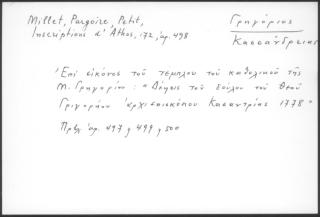 Millet, Pargoire, Petit,
Inscriptions d'Athos, 172, ἀρ. 498
Γρηγόριος
Κασσάνδρειας
Ἐπί εἰκόνος τοῦ τέμπλου τοῦ καθολικοῦ τῆς
Μ. Γρηγορίου : "Δέησις τοῦ δούλου τοῦ Θεοῦ
Γριγορήου ἀρχιεπισκόπου Κασαντρίας 1778"
Πρβλ ἀρ. 497, 499, 500